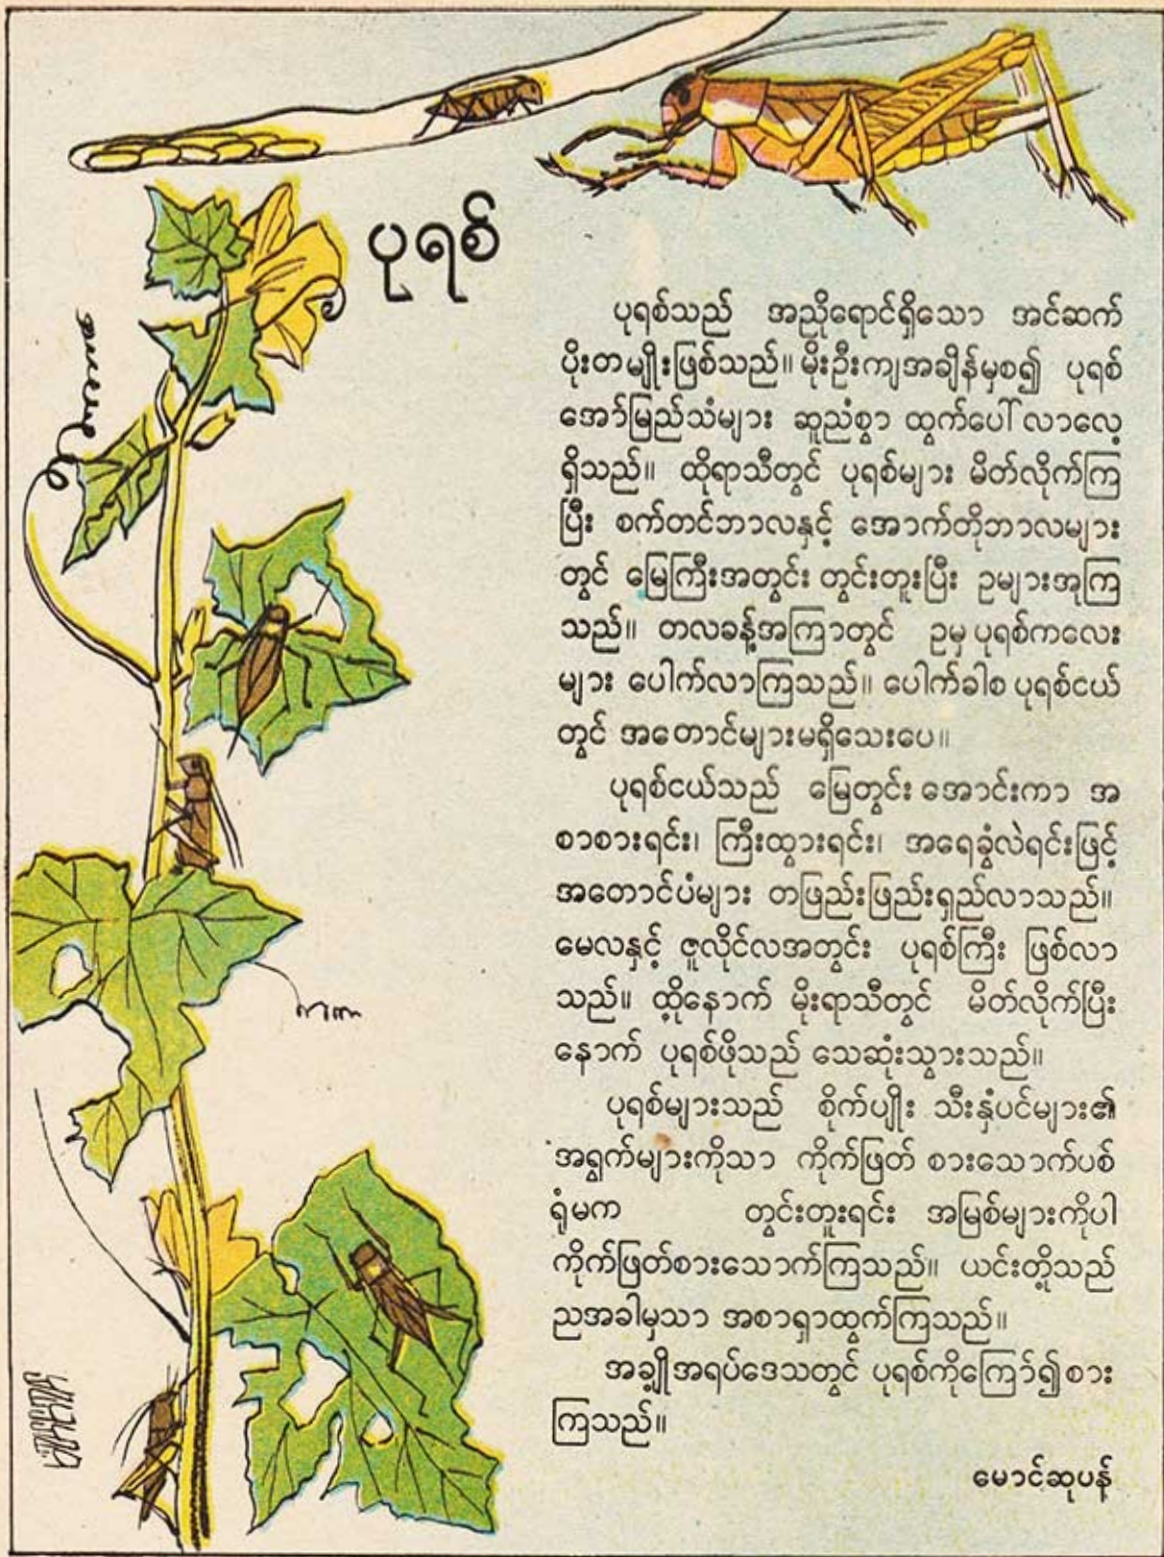 ပုရစ်
ပုရစ်သည် အညိုရောင်ရှိသော အင်ဆက်
ပိုးတမျိုးဖြစ်သည်။ မိုးဦးကျအချိန်မှစ၍ ပုရစ်
အော်မြည်သံများ ဆူညံစွာ ထွက်ပေါ်လာလေ့
ရှိသည်။ ထိုရာသီတွင် ပုရစ်များ မိတ်လိုက်ကြ
ပြီး စက်တင်ဘာလနှင့် အောက်တိုဘာလများ
တွင် မြေကြီးအတွင်း တွင်းတူးပြီး ဥများအုကြ
သည်။ တလခန့်အကြာတွင် ဥမှ ပုရစ်ကလေး
များ ပေါက်လာကြသည်။ ပေါက်ခါစ ပုရစ်ငယ်
တွင် အတောင်များမရှိသေးပေ။
ပုရစ်ငယ်သည် မြေတွင်းအောင်းကာ အ
စာစားရင်း၊ ကြီးထွားရင်း၊ အရေခွံလဲရင်းဖြင့်
အတောင်ပံများ တဖြည်းဖြည်းရှည်လာသည်။
မေလနှင့် ဇူလိုင်လအတွင်း ပုရစ်ကြီး ဖြစ်လာ
သည်။ ထို့နောက် မိုးရာသီတွင် မိတ်လိုက်ပြီး
နောက် ပုရစ်ဖိုသည် သေဆုံးသွားသည်။
ပုရစ်များသည် စိုက်ပျိုး သီးနှံပင်များ၏
အရွက်များကိုသာ ကိုက်ဖြတ် စားသောက်ပစ်
ရုံမက တွင်းတူးရင်း အမြစ်များကိုပါ
ကိုက်ဖြတ်စားသောက်ကြသည်။ ယင်းတို့သည်
ညအခါမှသာ အစာရှာထွက်ကြသည်။
အချို့အရပ်ဒေသတွင် ပုရစ်ကိုကြော်၍စား
ကြသည်။
မောင်ဆုပန်